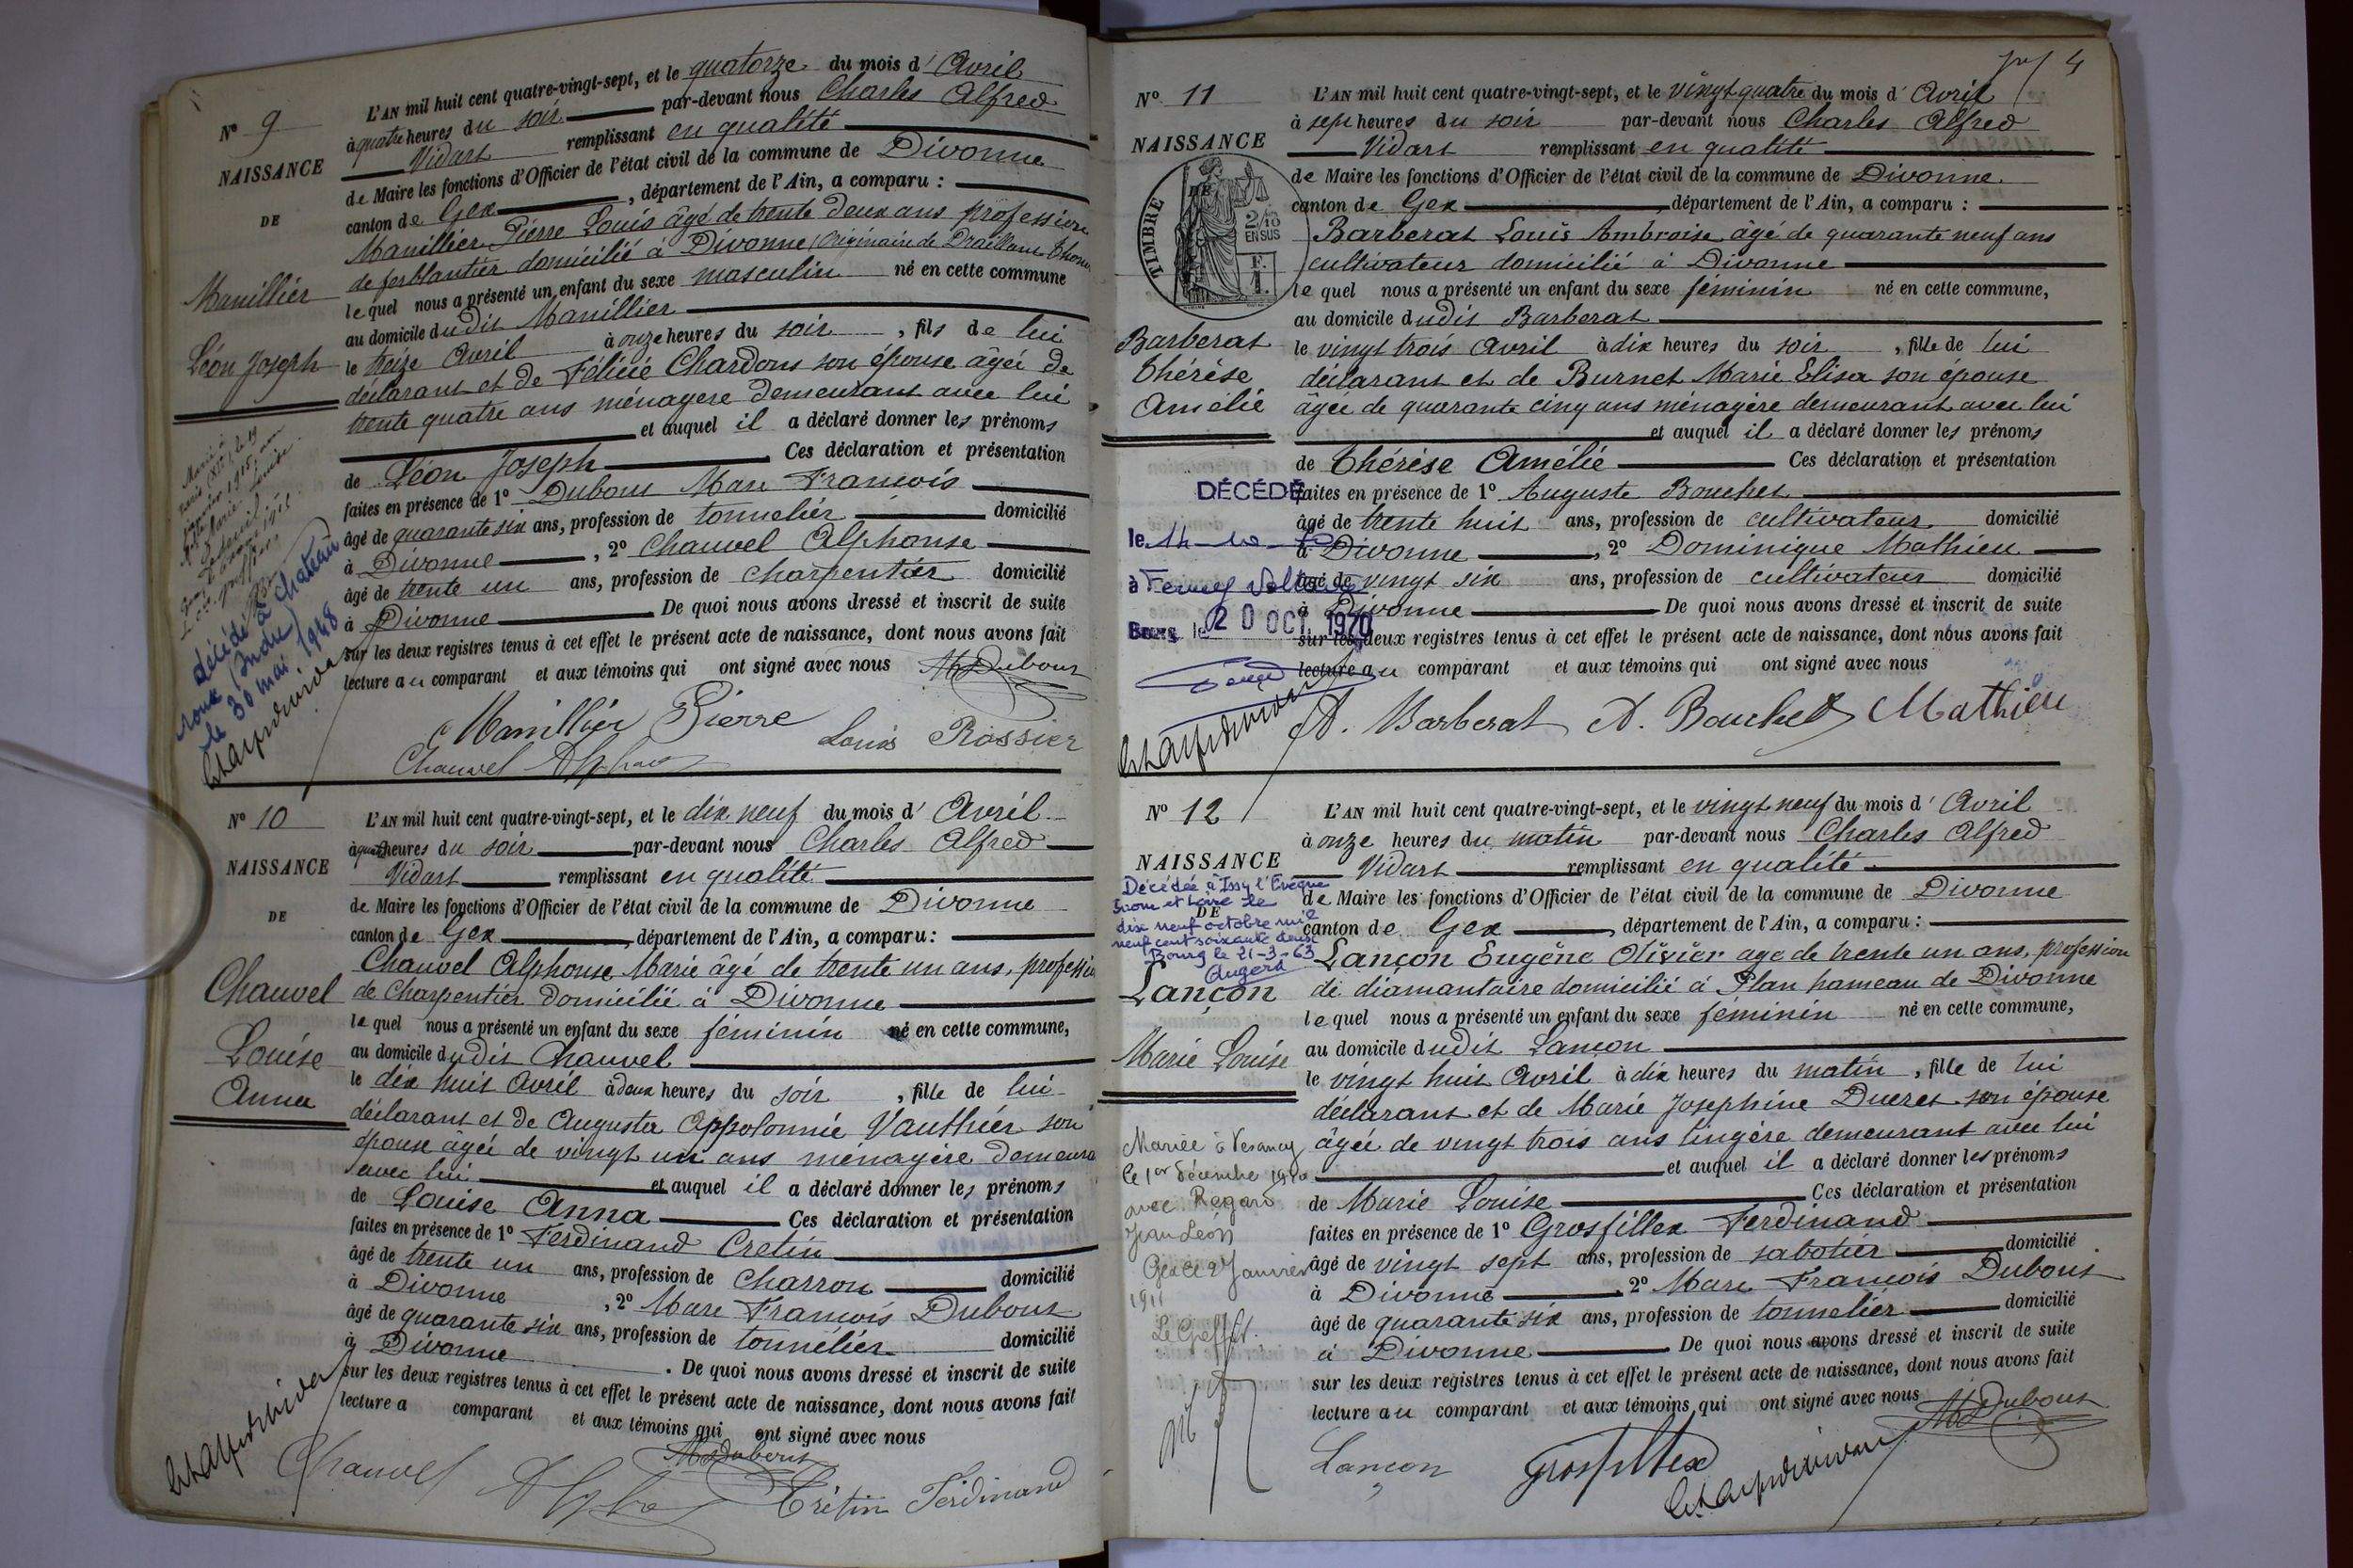 Nº 9
NAISSANCE
DE
Manillier
Léon Joseph
décédé à Chateau
roux (Indre)
le 30 mai 1948
L'AN mil huit cent quatre-vingt-sept, et le quatorze du mois d' Avril
à quatre heures du soir par-devant nous Charles Alfred
Vidart remplissant en qualité
de Maire les fonctions d'Officier de l'état civil de la commune de Divonne
canton de Gex, département de l'Ain, a comparu :
Manillier Pierre Louis âgé de trente deux ans profession
de ferblantier domicilié à Divonne (originaire de Draillans
le quel nous a présenté un enfant du sexe masculin né en cette commune
au domicile dudit Manillier
le treize Avril à onze heures du soir, fils de lui
déclarant et de Félicie Chardons son épouse âgée de
trente quatre ans ménagère demeurant avec lui
et auquel il a déclaré donner les prénoms
de Léon Joseph Ces déclaration et présentation
faites en présence de 1º Dubout Marc François
âgé de quarante six ans, profession de tonnelier domicilié
à Divonne, 2º Chauvel Alphonse
âgé de trente un ans, profession de charpentier domicilié
à Divonne De quoi nous avons dressé et inscrit de suite
sur les deux registres tenus à cet effet le présent acte de naissance, dont nous avons fait
lecture au comparant et aux témoins qui ont signé avec nous Dubout
Manillier Pierre Louis Rossier
Chauvel
Nº 10
NAISSANCE
DE
Chauvel
Louise
Anna
L'AN mil huit cent quatre-vingt-sept, et le dix neuf du mois d' Avril
à quatre heures du soir par-devant nous Charles Alfred
Vidart remplissant en qualité
de Maire les fonctions d'Officier de l'état civil de la commune de Divonne
canton de Gex, département de l'Ain, a comparu :
Chauvel Alphonse Marie âgé de trente un ans, profession
de Charpentier domicilié à Divonne
le quel nous a présenté un enfant du sexe féminin né en cette commune,
au domicile dudit Chauvel
le dix huit Avril à deux heures du soir, fille de lui
déclarant et de Augusta Appolonnie Vauthier son
épouse âgée de vingt un ans ménagère demeura
avec lui et auquel il a déclaré donner les prénoms
de Louise Anna Ces déclaration et présentation
faites en présence de 1º Ferdinand Cretin
âgé de trente un ans, profession de charron domicilié
à Divonne, 2º Marc François Dubout
âgé de quarante six ans, profession de tonnélier domicilié
à Divonne. De quoi nous avons dressé et inscrit de suite
sur les deux registres tenus à cet effet le présent acte de naissance, dont nous avons fait
lecture a comparant et aux témoins qui ont signé avec nous
Dubout
Chauvel Crétin Ferdinand
4
Nº 11
NAISSANCE
DE
TIMBRE
2/10
EN SUS
F.
1.
Barberat
Thérèse
Amélie
DÉCÉDÉ
le 14-10-
à Ferney Voltaire
Bourg le 20 OCT. 1970
L'AN mil huit cent quatre-vingt-sept, et le vingt quatre du mois d' Avril
à sept heures du soir par-devant nous Charles Alfred
Vidart remplissant en qualité
de Maire les fonctions d'Officier de l'état civil de la commune de Divonne
canton de Gex département de l'Ain, a comparu :
Barberat Louis Ambroise âgé de quarante neuf ans
cultivateur domicilié à Divonne
le quel nous a présenté un enfant du sexe féminin né en cette commune,
au domicile dudit Barberat
le vingt trois Avril à dix heures du soir, fille de lui
déclarant et de Burnet Marie Elisa son épouse
âgée de quarante cinq ans ménagère demeurant avec lui
et auquel il a déclaré donner les prénoms
de Thérèse Amélie Ces déclaration et présentation
faites en présence de 1º Auguste Bouchet
âgé de trente huit ans, profession de cultivateur domicilié
à Divonne, 2º Dominique Mathieu
âgé de vingt six ans, profession de cultivateur domicilié
à Divonne De quoi nous avons dressé et inscrit de suite
sur les deux registres tenus à cet effet le présent acte de naissance, dont nous avons fait
lecture au comparant et aux témoins qui ont signé avec nous
A. Barberat A. Bouchet Mathieu
Nº 12
NAISSANCE
DE
Décédée à Issy l'Evèque
Saone et Loire le
dix neuf octobre mil
neuf cent soixante deux
Bourg le 21-3-63
Lançon
Marie Louise
Mariée à Vesancy
le 1er Décembre 1910
avec Regard
Jean Léon
Gex le 2 Janvier
1911
Le Greffier
L'AN mil huit cent quatre-vingt-sept, et le vingt neuf du mois d' Avril
à onze heures du matin par-devant nous Charles Alfred
Vidart remplissant en qualité
de Maire les fonctions d'Officier de l'état civil de la commune de Divonne
canton de Gex, département de l'Ain, a comparu :
Lançon Eugène Olivier age de trente un ans, profession
de diamantaire domicilié à Plan hameau de Divonne
lequel nous a présenté un enfant du sexe féminin né en cette commune,
au domicile dudit Lançon
le vingt huit Avril à dix heures du matin, fille de lui
déclarant et de Marie Josephine Ducret son épouse
âgée de vingt trois ans lingère demeurant avec lui
et auquel il a déclaré donner les prénoms
de Marie Louise Ces déclaration et présentation
faites en présence de 1º Grosfillex Ferdinand
âgé de vingt sept ans, profession de sabotier domicilié
à Divonne, 2º Marc François Dubout
âgé de quarante six ans, profession de tonnelier domicilié
à Divonne De quoi nous avons dressé et inscrit de suite
sur les deux registres tenus à cet effet le présent acte de naissance, dont nous avons fait
lecture au comparant et aux témoins qui ont signé avec nous Dubout
Lançon Grosfillex